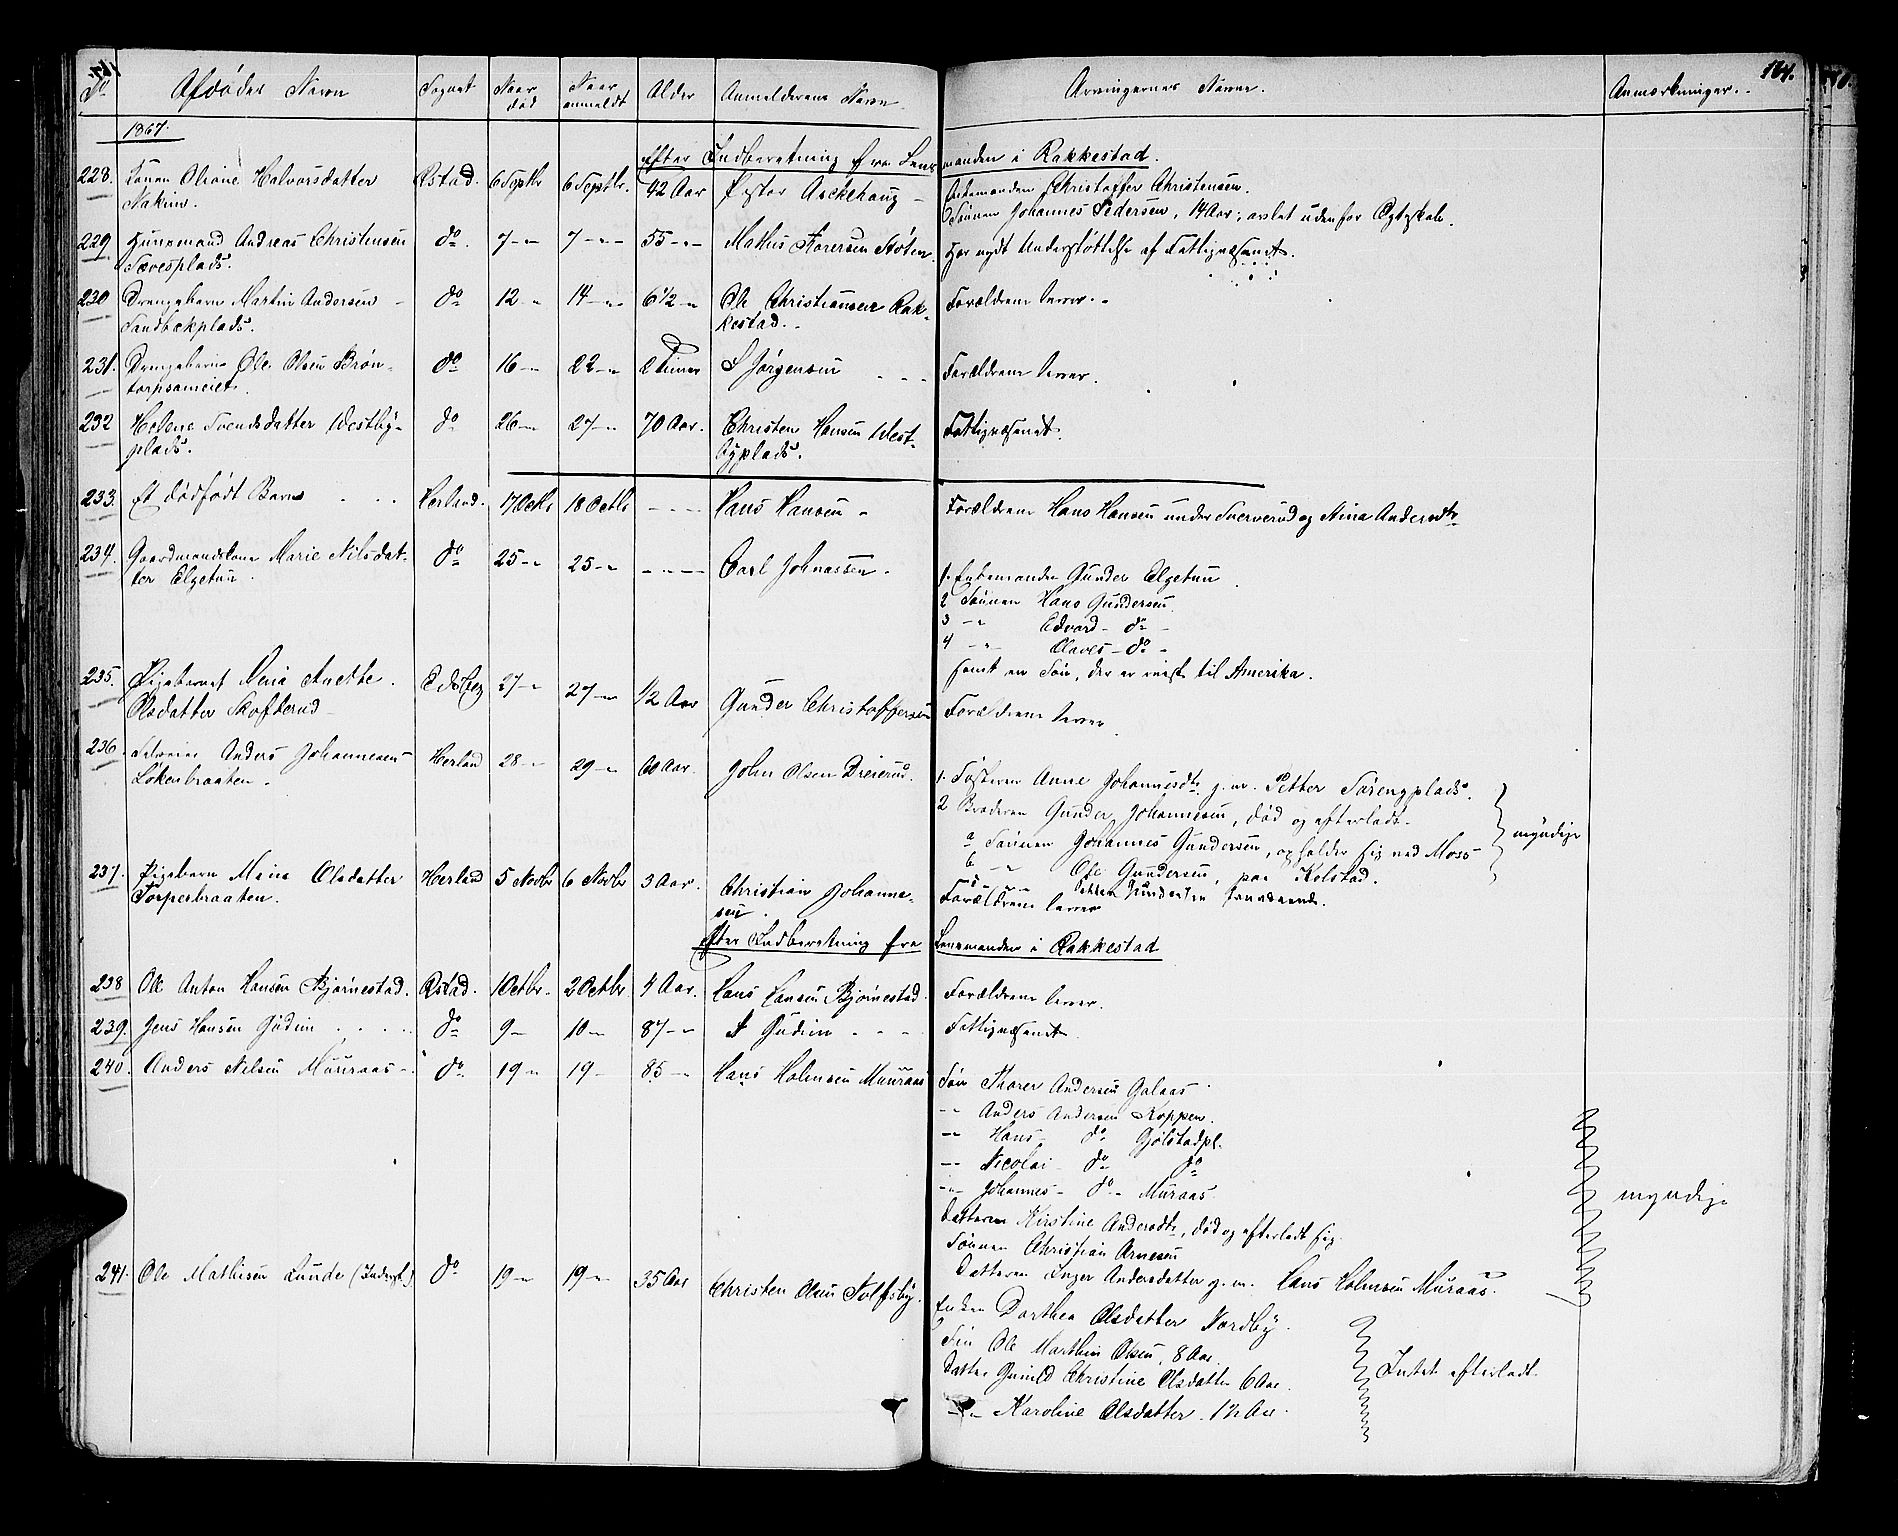 164.
No Afdødes Navn Sognet Naar død Naar anmeldt Alder Anmelderens Navn Arvingernes Navne. Anmærkninger.
1867.
Efter Indberetning fra Lensmanden i Rakkestad.
228. Konen Oliane Halvorsdatter Rstad. 6 Septbr 6 Septbr. 42 Aar Peter Aschehoug - Enkemanden Christoffer Christensen.
Nakim. Sønnen Johannes Pedersen, 14 Aar, avlet udenfor Ægteskab.
229 Huusmand Andreas Christensen do. 7 -"- 7 -"- 55 -"- Mathis Thoresen Støten. Har nydt Understøttelse af Fattigvæsenet.
Sævesplads.
230 Drengebarn Martin Andersen - do 12 -" 14 -"- 6 1/2 -" Ole Christiansen Rak- Forældrene lever. -
Sandbækplads. kestad. -
231. Drengebarn Ole Olsen Brøn- do 16 -" 22 -" 2 Timer S Jørgensen Forældrene lever.
torpsameiet.
232 Helene Svendsdatter Westby- do 26 -" 27 -" 70 Aar. Christen Hansen West- Fattigvæsenet.
plads. byplads.
233. Et dødfødt Barn Herland. 17 Octbr 18 Octbr - - - - Hans Hansen - Forældrene Hans Hansen under Sververud og Nina Andersdtr
234. Gaardmandskone Marie Nilsdat- do 25 -" 25 -" - - - - Carl Johnassen. 1. Enkemanden Gunder Elgetun
ter Elgetun. 2 Sønnen Hans Gundersen.
3 -" Edvard - do -
4 -"- Claves - do -
samt en Søn, der er reist til Amerika.
235. Pigebarnet Maria Anette Eidsberg 27 -" 27 -" 1/2 Aar Gunder Christoffersen Forældrene lever
Olsdatter Skofterud -
236. Anders Johannesen Herland 28 -" 29 -" 60 Aar. John Olsen Dreierud. 1. Søsteren Anne Johannesdtr g. m. Petter Sørengplads.
Løkenbraaten. 2 Broderen Gunder Johannesen, død og efterladt.
a Sønnen Johannes Gundersen, opholder sig ved Moss myndige
b -" Ole Gundersen, paa Kolstad.
c -"- Gundersen
237. Pigebarn Maria Olsdatter Herland 5 Novbr 6 Novbr 3 Aar. Christian Johanne- Forældrene lever
Torperbraaten. sen.
Efter Indberetning fra Lensmanden i Rakkestad
238 Ole Anton Hansen Bjørnestad. Rstad. 1 Octbr. 2 Octbr 4 Aar. Hans Hansen Bjørnestad. Forældrene lever.
239. Jens Hansen Gudim do 9 - 10 -" 87 -" Gudim Fattigvæsenet
240. Anders Nilsen Muuraas - do 19 -" 19 - 85 -" Hans Holmsen Muuraas Søn Thorer Andersen Galaas.
-"- Anders Andersen Koppen.
-"- Hans do Gjølstadpl.
-"- Nicolai - do do
-"- Johannes - do - Muraas. myndige
Datteren Kirstine Andersdtr, død og efterladt sig
Sønnen Christian Arnesen
Datteren Inger Andersdatter g. m. Hans Holmsen Muraas.
241. Ole Mathisen Lunde (Inderst.) do 19 -" 19 -" 35 Aar Christen Olsen Tolfsby. Enken Dorthea Olsdatter Nordby.
Søn Ole Marthin Olsen, 8 Aar.
Datter Gunild Christine Olsdatter 6 Aar. Intet efterladt.
-"- Karoline Olsdatter. 1 1/2 Aar.